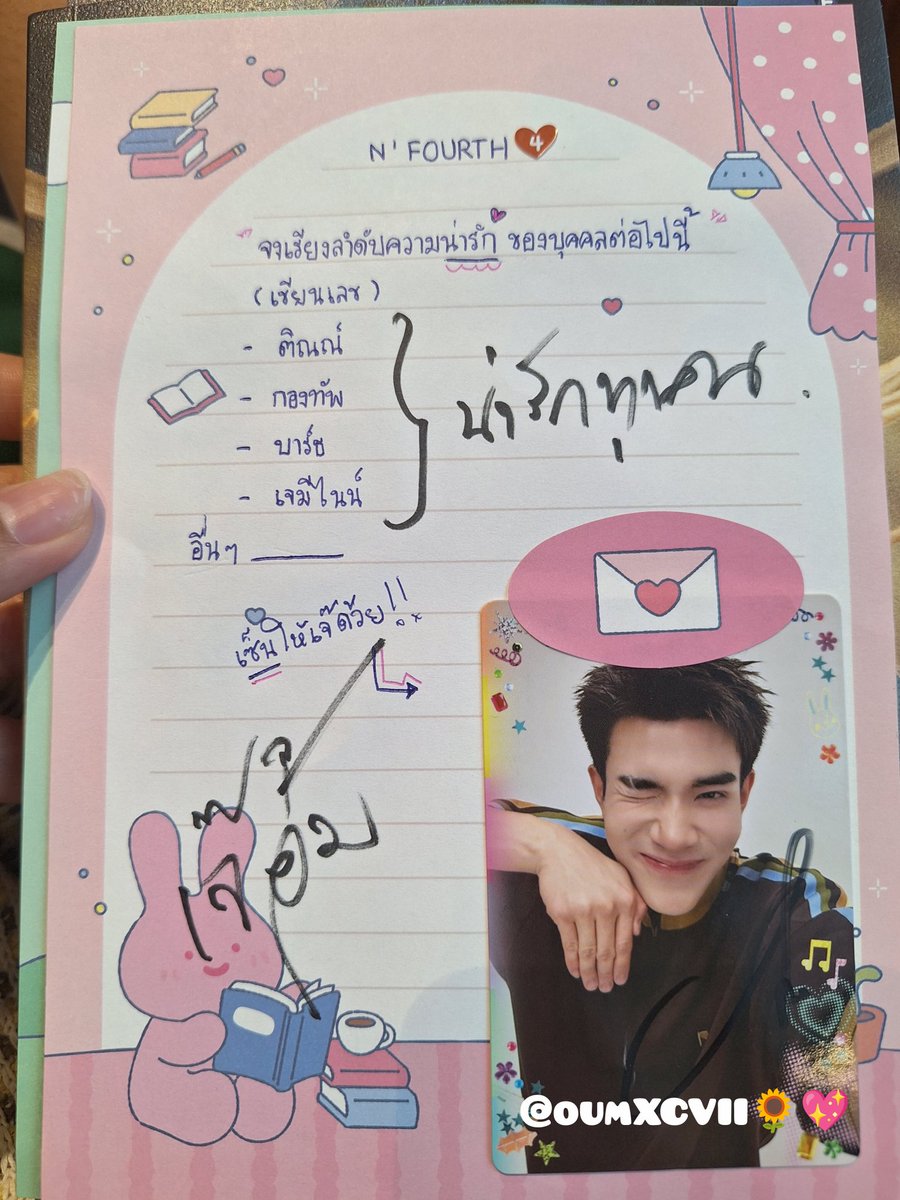 N' FOURTH 4
"จงเรียงลำดับความน่ารัก ของบุคคลต่อไปนี้"
(เขียนเลข)
- ติณณ์
- กองทัพ
- บาร์ธ
- เจมีไนน์
น่ารักทุกคน.
อื่นๆ
เซ็นให้เจ๊ด้วย!!
เจ๊อุ๋ม
@oumxcvii🌻💖